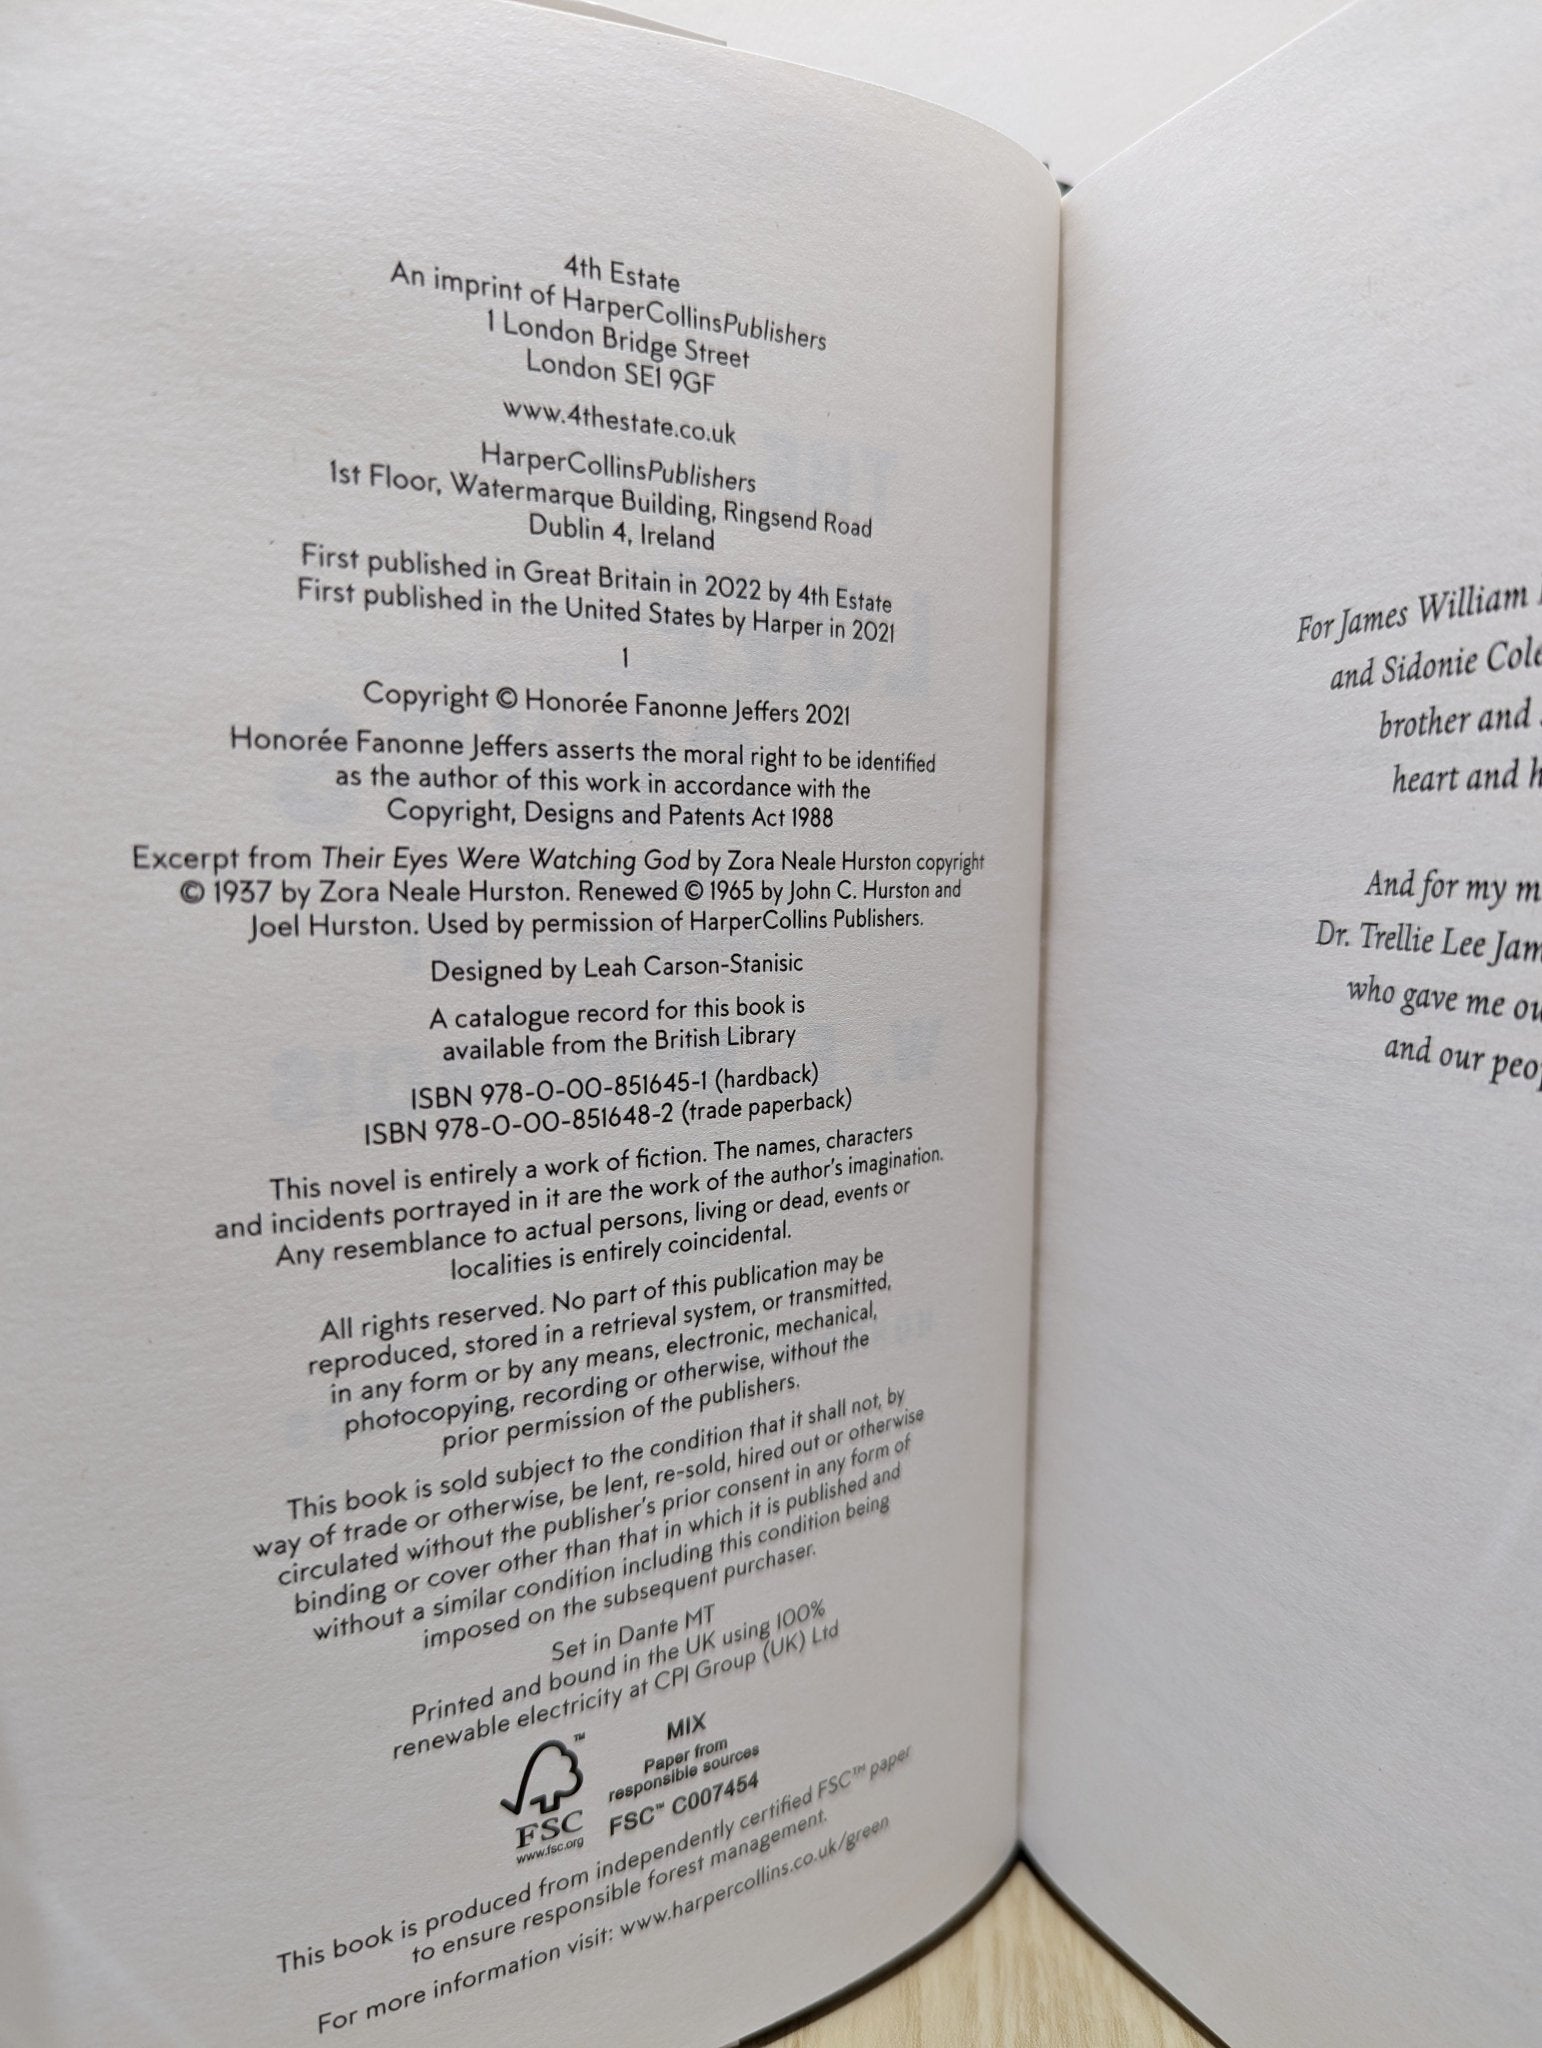 4th Estate
An imprint of HarperCollinsPublishers
1 London Bridge Street
London SE1 9GF
www.4thestate.co.uk
HarperCollinsPublishers
1st Floor, Watermarque Building, Ringsend Road
Dublin 4, Ireland
First published in Great Britain in 2022 by 4th Estate
First published in the United States by Harper in 2021
1
Copyright © Honorée Fanonne Jeffers 2021
Honorée Fanonne Jeffers asserts the moral right to be identified
as the author of this work in accordance with the
Copyright, Designs and Patents Act 1988
Excerpt from Their Eyes Were Watching God by Zora Neale Hurston copyright
© 1937 by Zora Neale Hurston. Renewed © 1965 by John C. Hurston and
Joel Hurston. Used by permission of HarperCollins Publishers.
Designed by Leah Carson-Stanisic
A catalogue record for this book is
available from the British Library
ISBN 978-0-00-851645-1 (hardback)
ISBN 978-0-00-851648-2 (trade paperback)
This novel is entirely a work of fiction. The names, characters
and incidents portrayed in it are the work of the author's imagination.
Any resemblance to actual persons, living or dead, events or
localities is entirely coincidental.
All rights reserved. No part of this publication may be
reproduced, stored in a retrieval system, or transmitted,
in any form or by any means, electronic, mechanical,
photocopying, recording or otherwise, without the
prior permission of the publishers.
This book is sold subject to the condition that it shall not, by
way of trade or otherwise, be lent, re-sold, hired out or otherwise
circulated without the publisher's prior consent in any form of
binding or cover other than that in which it is published and
without a similar condition including this condition being
imposed on the subsequent purchaser.
Set in Dante MT
Printed and bound in the UK using 100%
renewable electricity at CPI Group (UK) Ltd
™
FSC
www.fsc.org
MIX
Paper from
responsible sources
FSC™ C007454
This book is produced from independently certified FSC™ paper
to ensure responsible forest management.
For more information visit: www.harpercollins.co.uk/green
For James William
and Sidonie
brother and
heart and
And for my
Dr. Trellie Lee
who gave me
and our